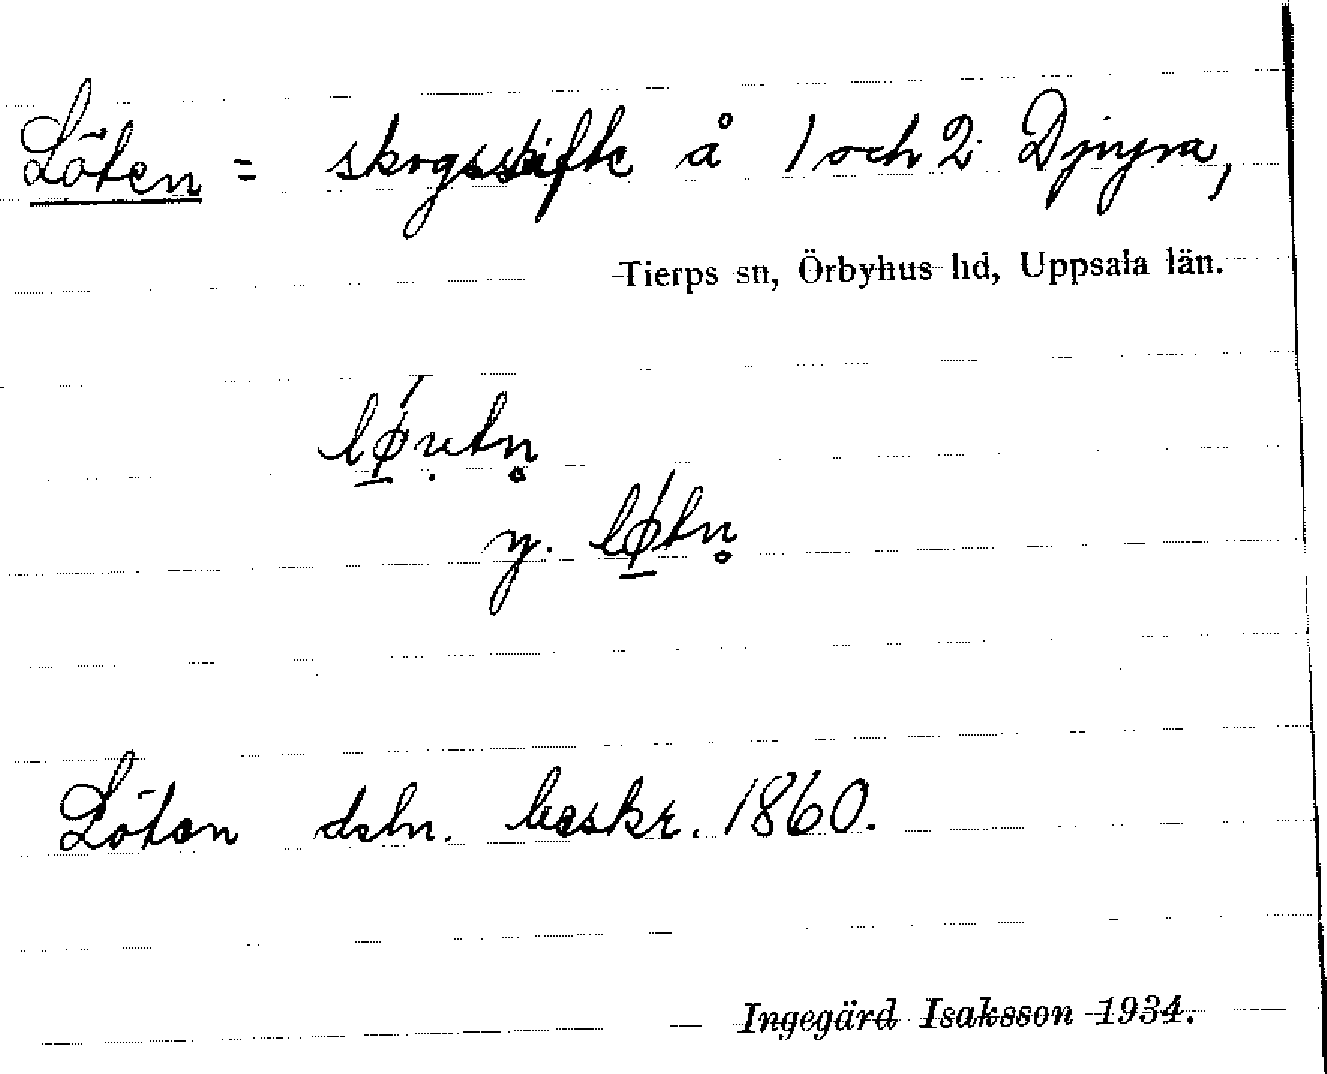 Löten = skogsskifte å 1 och 2 Djupa,
Tierps sn, Örbyhus hd, Uppsala län.
y.
Löten dsbn. beskr. 1860.
Ingegärd Isaksson 1934.